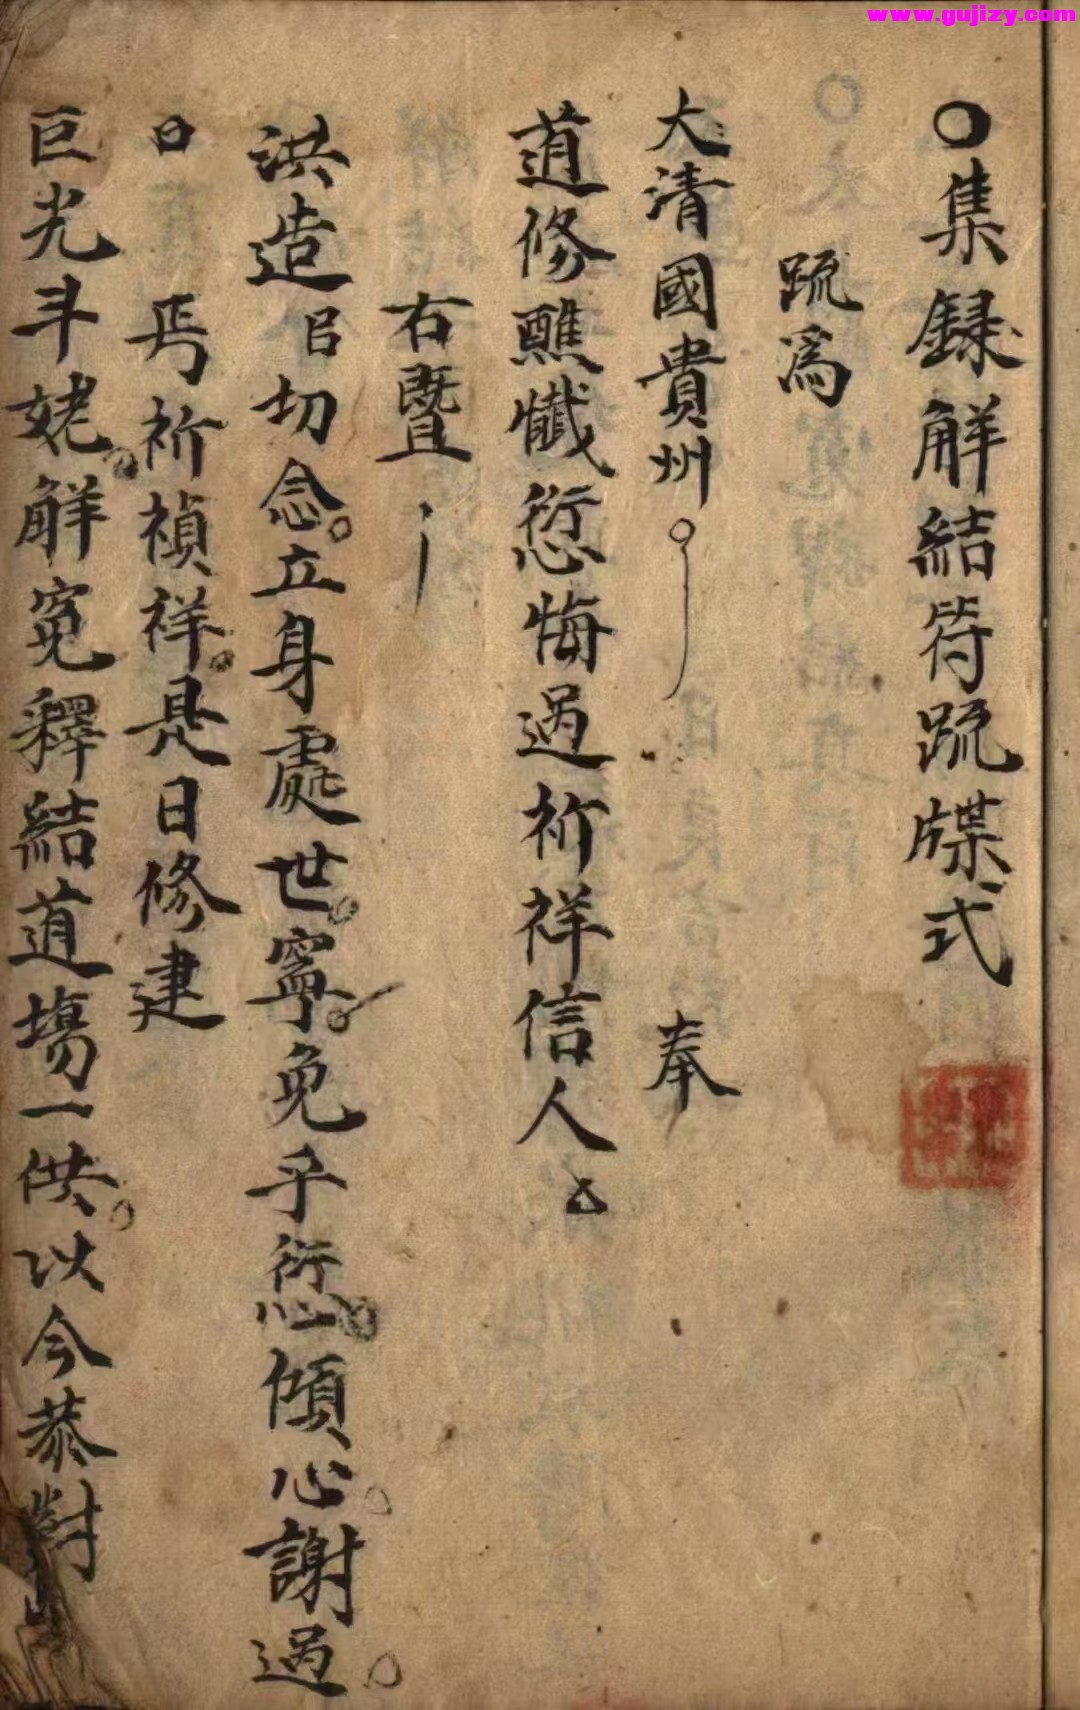 www.gujizy.com
○集録解結符疏牒式
疏爲
大清國貴州。奉
道修醮懺愆悔過祈祥信人
右暨
洪造㠯切念。立身處世。寧。免乎愆。傾心。謝過。
日 焉祈禎祥。是日修建
巨光斗姥。解冤釋結道場一供。以今恭對